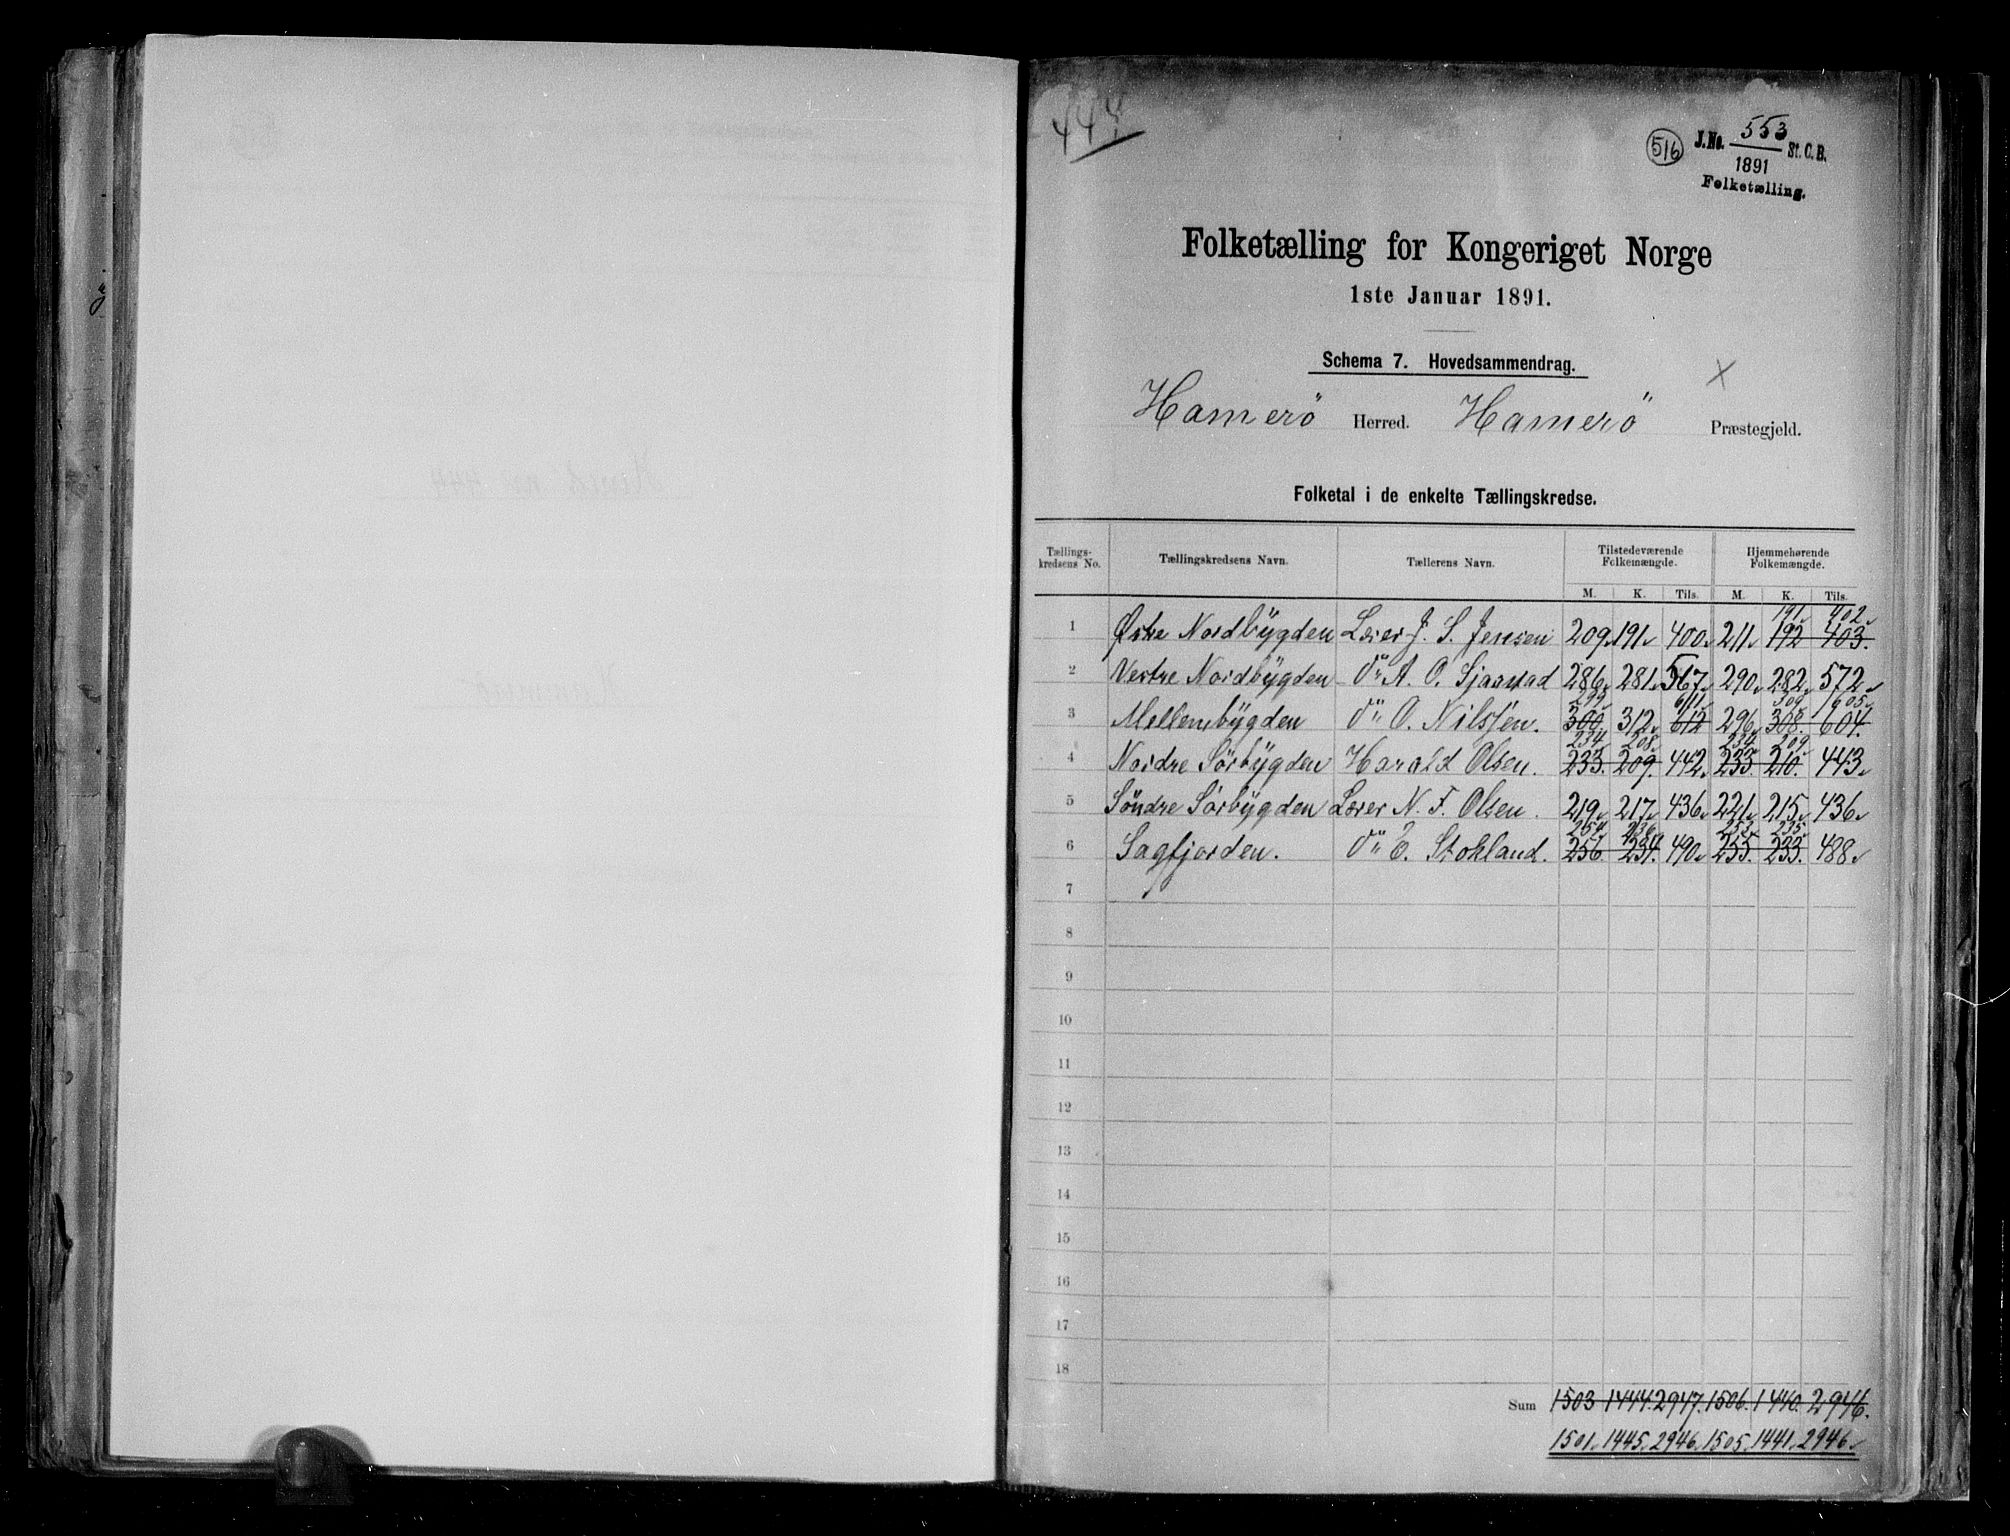 444
516 J.No. 553 St.C.B.
1891
Folketælling.
Folketælling for Kongeriget Norge
1ste Januar 1891.
Schema 7. Hovedsammendrag.
Hamerö Herred. Hamerö Præstegjeld.
Folketal i de enkelte Tællingskredse.
Tællings-kredsens No. Tællingskredsens Navn. Tællerens Navn. Tilstedeværende Folkemængde. Hjemmehørende Folkemængde.
M. K. Tils. M. K. Tils.
191. 402.
1 Østre Nordbygden Lærer J. S. Jensen 209. 191. 400. 211. 192 403.
2 Vestre Nordbygden do A. O. Sjaastad 286. 281. 567. 290. 282. 572.
299. 611. 309. 605.
3 Mellembygden do O. Nilssen. 300. 312. 612 296. 308. 604.
234. 208. 234. 209.
4 Nordre Sørbygden Harald Olsen. 233. 209. 442. 233. 210. 443.
5 Søndre Sørbygden Lærer N. F. Olsen. 219. 217. 436. 221. 215. 436.
254. 236. 253. 235.
6 Sagfjorden. do E. Stokland. 256. 234. 490. 255. 233. 488.
7
8
9
10
11
12
13
14
15
16
17
18
Sum 1503 1444. 2947. 1506. 1440. 2946.
1501. 1445. 2946. 1505. 1441. 2946.